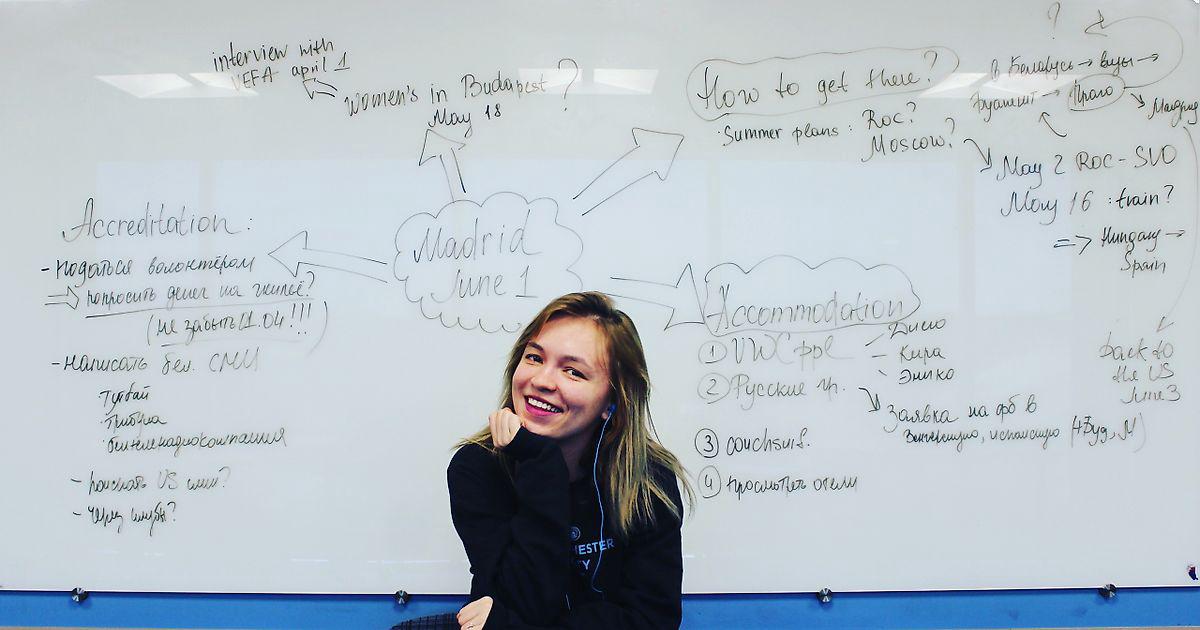 interview with
UEFA april 1
women's in Budapest ?
May 18
How to get there?
· Summer plans : Roc?
Moscow?
?
в Беларусь → визы →
Будапешт → Прага
Мадрид
May 2 Roc - SVO
May 16 : train?
⇒ Hungary →
Spain
back to
the US
June 3
Madrid
June 1
Accreditation :
- податься волонтёром
⇒ попросить денег на жильё?
(не забыть 1.04!!!)
- написать бел. СМИ
тутбай
· трибуна
· белтелерадиокомпания
- поискать US сми?
- через клубы?
Accommodation
① UWC ppl
– Кира
– Энико
② Русские гр.
Заявка на фб в
венгерскую, испанскую (4 Буд, М)
③ couchsurf.
④ просмотреть отели